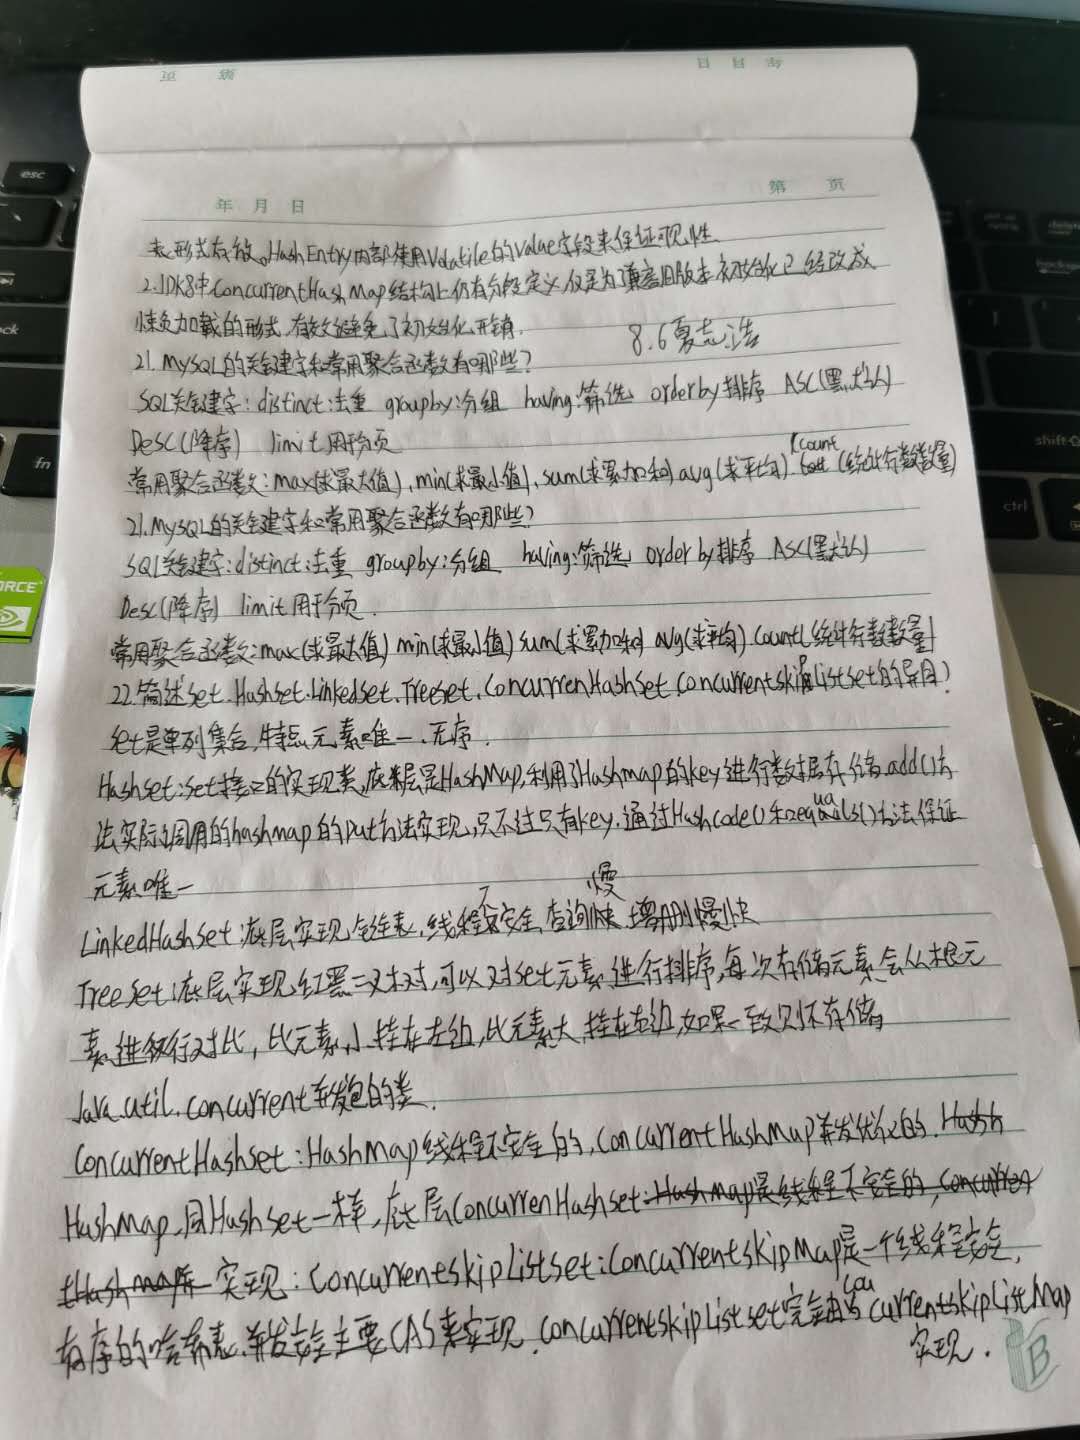 年 月 日
第 页
表形式存放。HashEntry内部使用Volatile的Value字段来保证可见性
2.JDK8中ConcurrentHashMap结构上仍有分段定义,仅是为了兼容旧版本.初始化已经改成
懒负加载的形式,有效避免了初始化开销.
8.6夏志浩
21.MySQL的关键字和常用聚合函数有哪些?
SQL关键字:distinct:去重 groupby:分组 having:筛选 orderby排序 ASC(默认)
Desc(降序) limit用于分页
常用聚合函数:max(求最大值),min(求最小值),sum(求累加和)avg(求平均)(count(统计行数数量)
21.MySQL的关键字和常用聚合函数有哪些?
SQL关键字:distinct:去重 groupby:分组 having:筛选 order by排序 ASC(默认)
Desc(降序) limit用于分页.
常用聚合函数:max(求最大值)min(求最小值)sum(求累加和)avg(求平均)count(统计行数数量)
22.简述set.Hashset.Linkedset.Treeset.ConcurrenHashSet.Concurrentskiplistset的异同?
set是单列集合,特点元素唯一、无序.
Hashset:set接口的实现类,底层是HashMap,利用了Hashmap的key进行数据存储.add()方
法实际调用的hashmap的put方法实现,只不过只有key.通过Hashcode()和equals()方法保证
元素唯一
LinkedHashSet:底层实现链表,线程不安全,查询慢,增删快
TreeSet:底层实现红黑二叉树,可以对set元素进行排序,每次存储元素会从根元
素进行对比,比元素小挂在左边,比元素大,挂在右边,如果一致则不存储
Java.util.concurrent并发包的类.
ConcurrentHashset:HashMap线程不安全的,ConcurrentHashMap并发优化的.Hash
HashMap,同Hashset一样,底层ConcurrenHashset:Hashmap是线程不安全的,concurren
tHashmap库 实现:ConcurrentskipListset:ConcurrentskipMap是一个线程安全,
有序的哈希表,并发安全主要CAS来实现.ConcurrentskipListset完全由以concurrentskipListMap
实现.
B